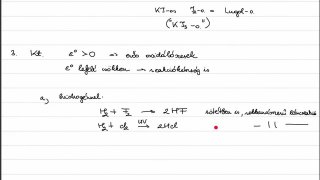 KI-os I₂-o. = Lugol-o.
("KI₃-o.")
3. Kt. ε° > 0 ⇒ erős oxidálószerek
ε° lefelé csökken ⇒ reakciókészség is
a, hidrogénnel:
H₂ + F₂ → 2HF sötétben is, robbanásszerű
H₂ + Cl₂ UV→ 2HCl — 11 —